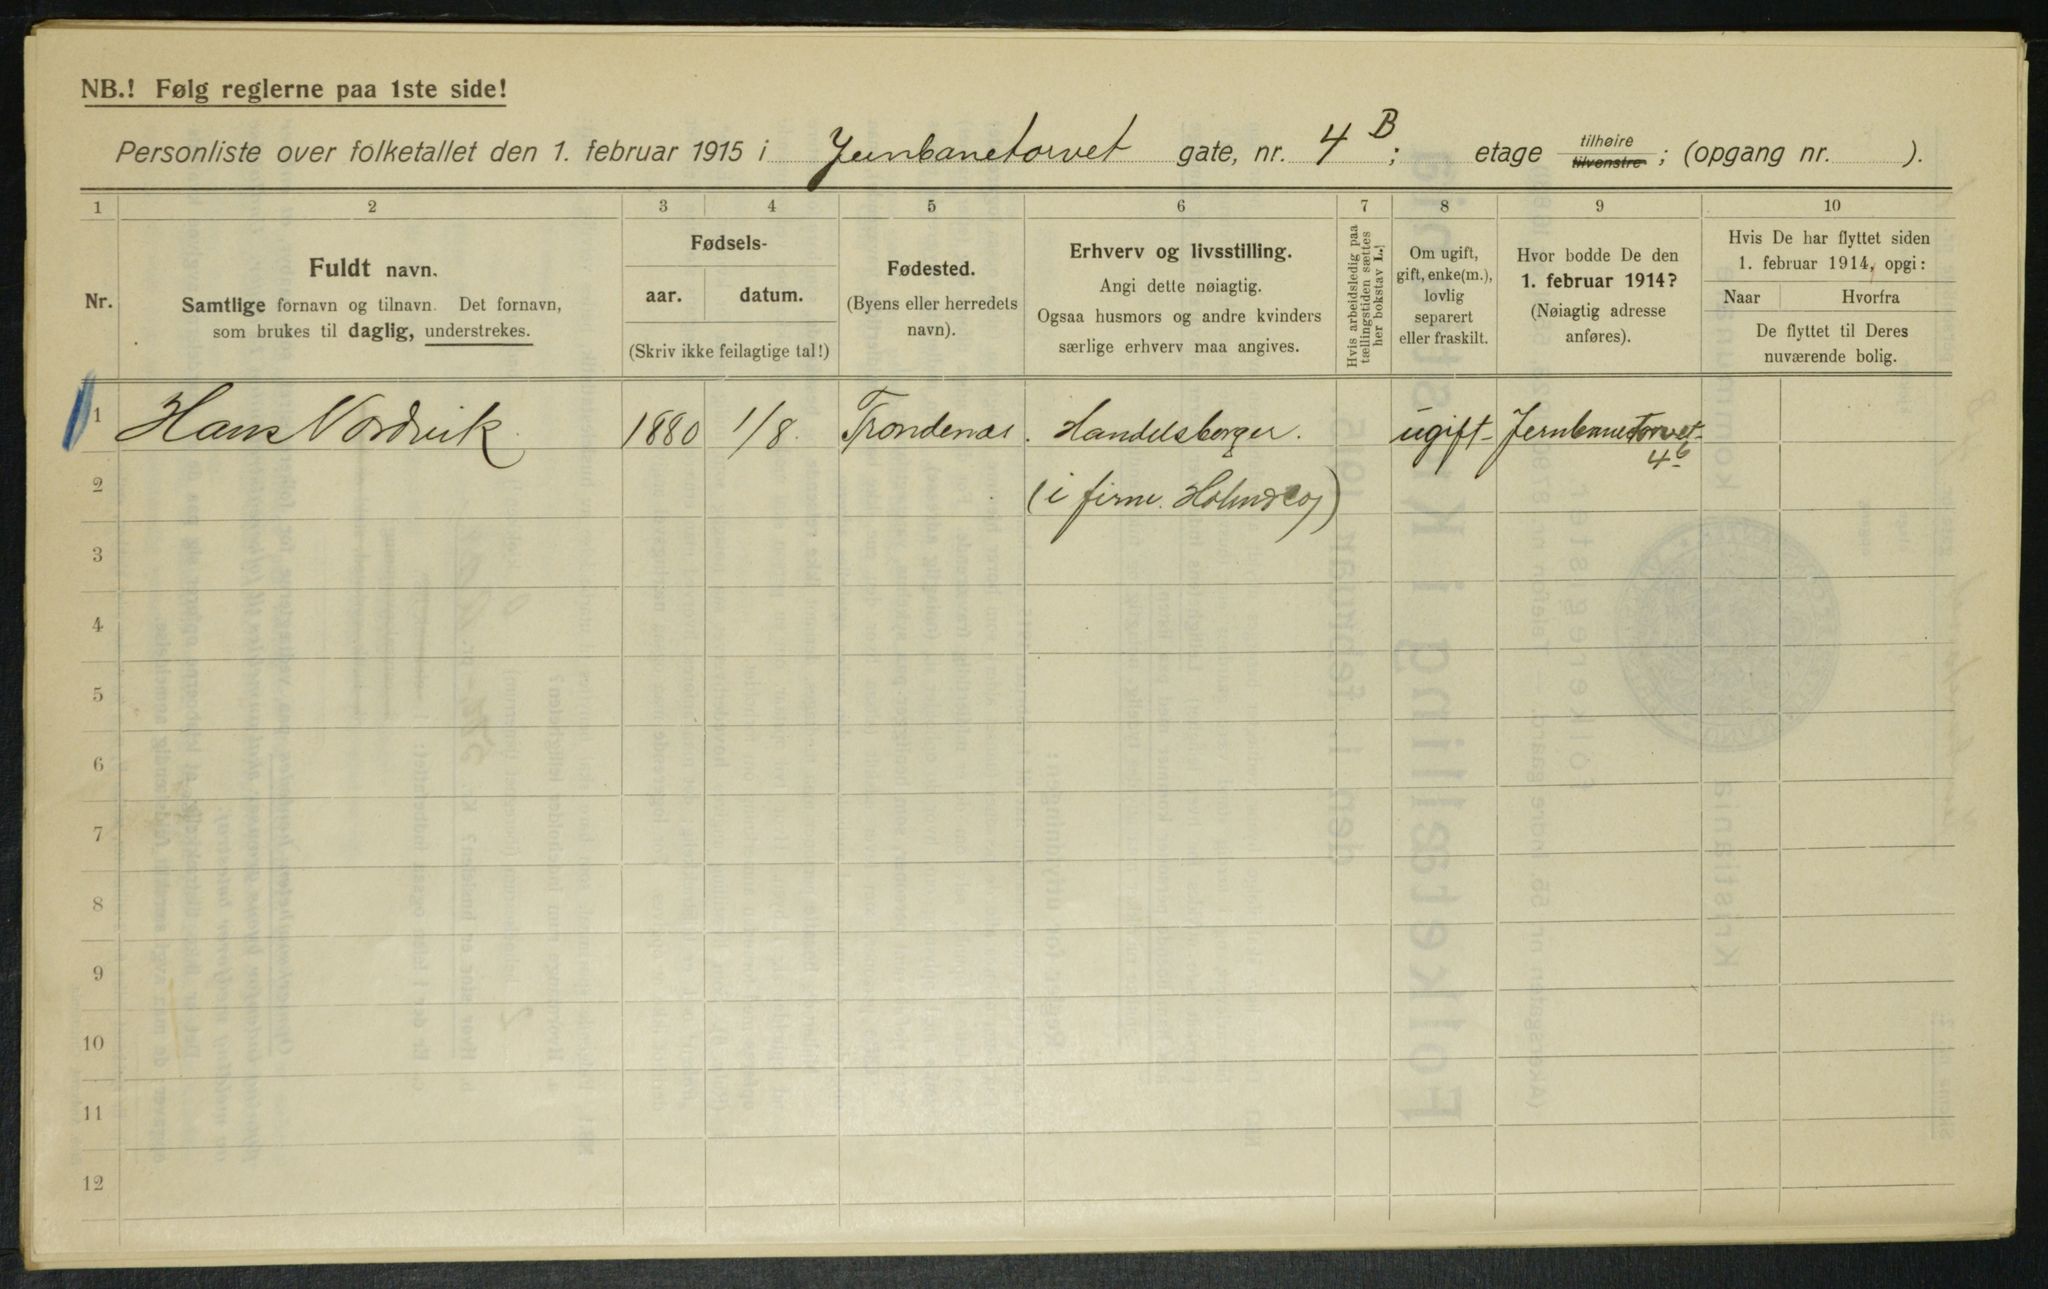 NB.! Følg reglerne paa 1ste side!
Personliste over folketallet den 1. februar 1915 i Jernbanetorvet gate, nr. 4 B; etage tilhøire tilvenstre; (opgang nr. ).
1 2 3 4 5 6 7 8 9 10
Nr.
Fuldt navn.
Samtlige fornavn og tilnavn. Det fornavn,
som brukes til daglig, understrekes.
Fødsels-
aar. datum.
(Skriv ikke feilagtige tal!)
Fødested.
(Byens eller herredets
navn).
Erhverv og livsstilling.
Angi dette nøiagtig.
Ogsaa husmors og andre kvinders
særlige erhverv maa angives.
Hvis arbeidsledig paa
tællingstiden sættes
her bokstav L.!
Om ugift,
gift, enke(m.),
lovlig
separert
eller fraskilt.
Hvor bodde De den
1. februar 1914?
(Nøiagtig adresse
anføres).
Hvis De har flyttet siden
1. februar 1914, opgi:
Naar Hvorfra
De flyttet til Deres
nuværende bolig.
1 Hans Nordvik 1880 1/8 Trondenæs. Handelsborger. ugift Jernbanetorvet
4 b
2 (i firma
3
4
5
6
7
8
9
10
11
12